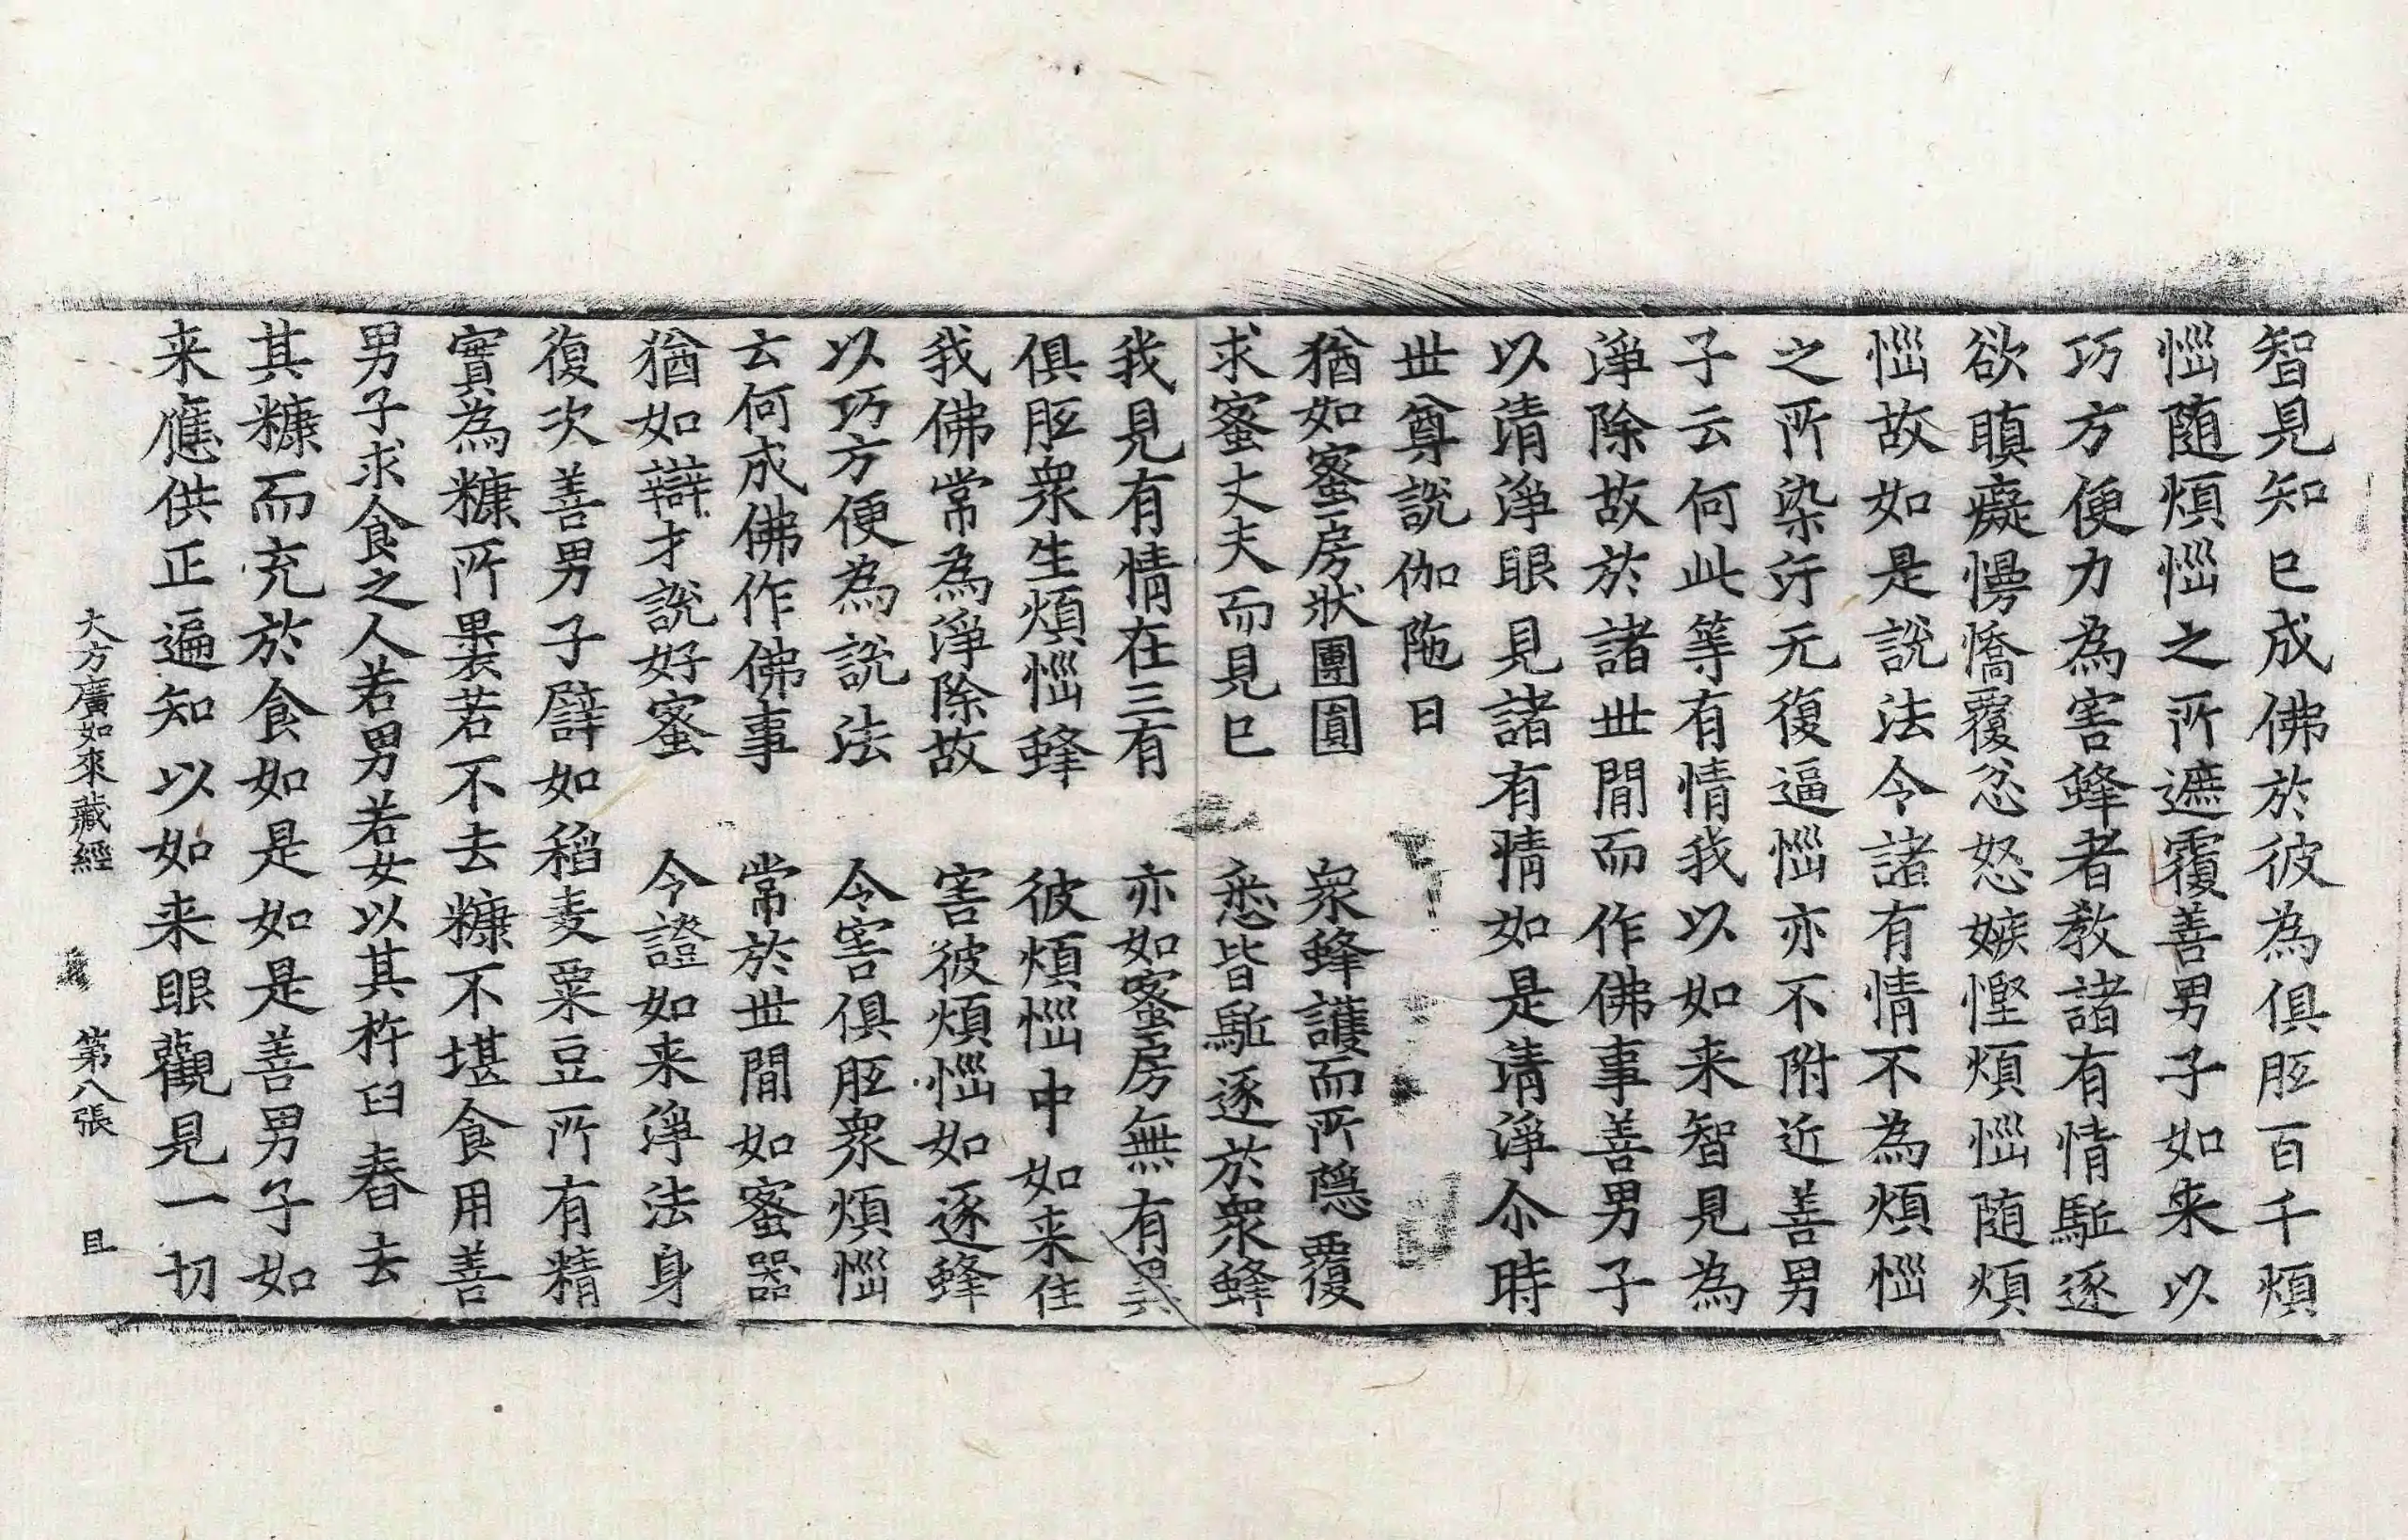 智見知已成佛於彼為俱胝百千煩
惱随煩惱之所遮覆善男子如来以
巧方便力為害蜂者教諸有情駈逐
欲瞋癡慢憍覆忿怒嫉慳煩惱随煩
惱故如是說法令諸有情不為煩惱
之所染汚无復逼惱亦不附近善男
子云何此等有情我以如来智見為
淨除故於諸世間而作佛事善男子
以清淨眼見諸有情如是清淨尒時
世尊說伽陁曰
猶如蜜房狀團圓　衆蜂護而所隱覆
求蜜丈夫而見已　悉皆駈逐於衆蜂
我見有情在三有　亦如蜜房無有異
俱胝衆生煩惱蜂　彼煩惱中如来住
我佛常為淨除故　害彼煩惱如逐蜂
以巧方便為說法　令害俱胝衆煩惱
云何成佛作佛事　常於世間如蜜器
猶如辯才說好蜜　令證如来淨法身
復次善男子譬如稻麦粟豆所有精
實為糠所裹若不去糠不堪食用善
男子求食之人若男若女以其杵臼舂去
其糠而充於食如是如是善男子如
来應供正遍知以如来眼觀見一切
大方廣如來藏經　第八張　且